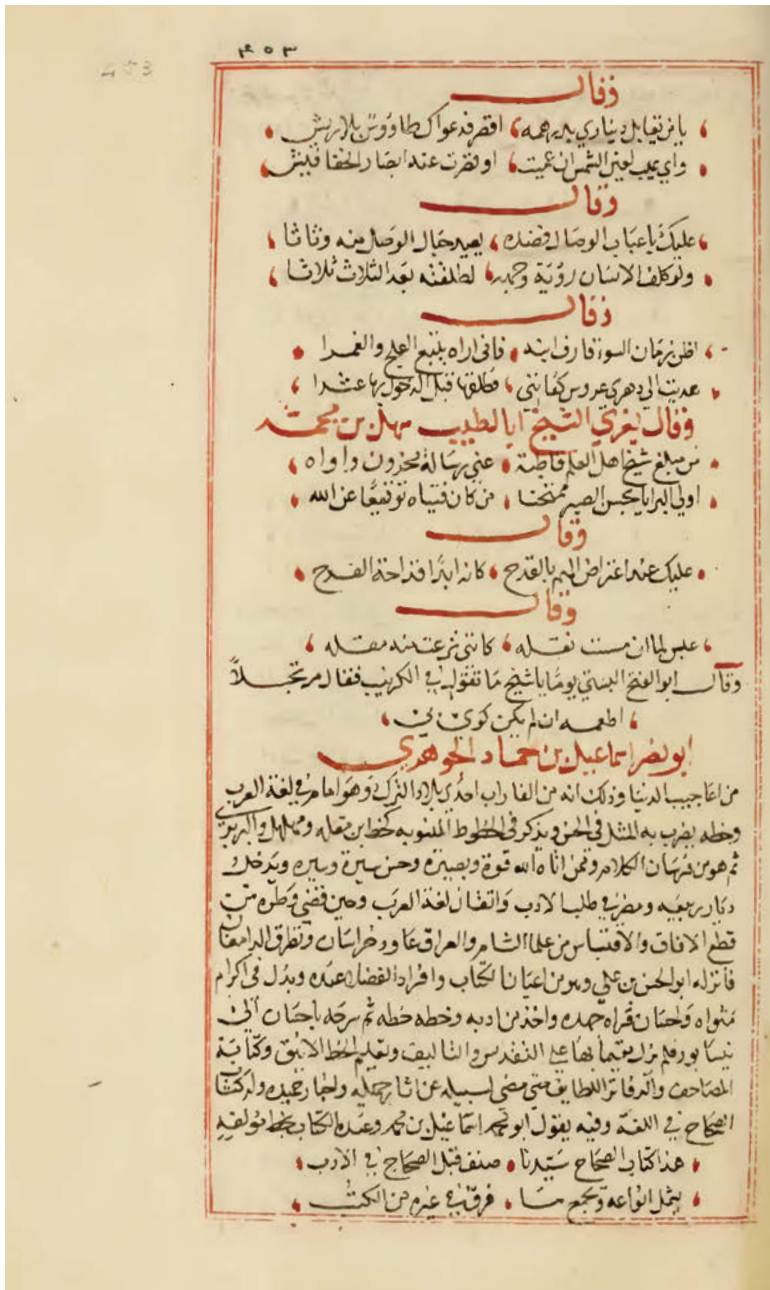 ٤٥٣
453
وقال
يا من يقابل ديناري بدرهمه اقصر فدعواك طاووس بلا ريش
واي عيب لعين الشمس ان عميت او قصرت عنه ابصار الخفافيش
وقال
عليك باعباب الوصال فضده يعيد حبال الوصل منه وثاثا
ولو كلف الانسان رؤية وجهه لطلقته بعد الثلاث ثلاثا
وقال
اظن زمان السوء فاني اراه يتبع
هديت الى دهري عروس كفايتي فطلقها قبل الدخول بها عشرا
وقال يعزي الشيخ ابا الطيب سهل بن محمد
من مبلغ شيخ اهل العلم قاطبة عني رسالة محزون واواه
اولى البرايا بحسن الصبر ممتحنا من كان فتياه توقيعا عن الله
وقال
عليك عند اعتراض الهم بالقدح
وقال
عبس لما ان مسست نقله كانني نزعت منه مقله
وقال ابو الفتح البستي يوما يا شيخ ما تقول في الكرنب فقال مرتجلا
اطعمه ان لم يكن كوى بي
ابو نصر اسماعيل بن حماد الجوهري
من اعاجيب الدنيا وذلك انه من الفاراب احدى بلاد الترك وهو امام في لغة العرب
وخطه يضرب به المثل في الحسن ويذكر في الخطوط المنسوبة كخط ابن مقله ومهلهل واليزيدي
ثم هو من فرسان الكلام وممن اتاه الله قوة وبصيرة وحسن سيرة وسيره ويدخل
ديار ربيعه ومضر في طلب الادب واتقان لغة العرب وحين قضى وطره من
قطع الافاق والاقتباس من علما الشام والعراق عاود خراسان وتطرق الدامغان
فانزله ابو الحسن بن علي وهو من اعيان الكتاب وافراد الفضلا عنده وبذل في اكرام
مثواه واحسان قراه جهده واخذ من ادبه وخطه حظه ثم سرحه باحسان الى
نيسابور فلم يزل مقيما بها على التدريس والتاليف وتعليم الخط الانيق وكتابة
المصاحف والدفاتر اللطايف حتى مضى لسبيله عن اثار جميله واخبار حميده وله كتاب
الصحاح في اللغة وفيه يقول ابو محمد اسماعيل بن محمد وعنده الكتاب بخط مؤلفه
هذا كتاب الصحاح سيدنا صنف قبل الصحاح في الادب
يشمل انواعه ويجمع ما فرق في غيره من الكتب